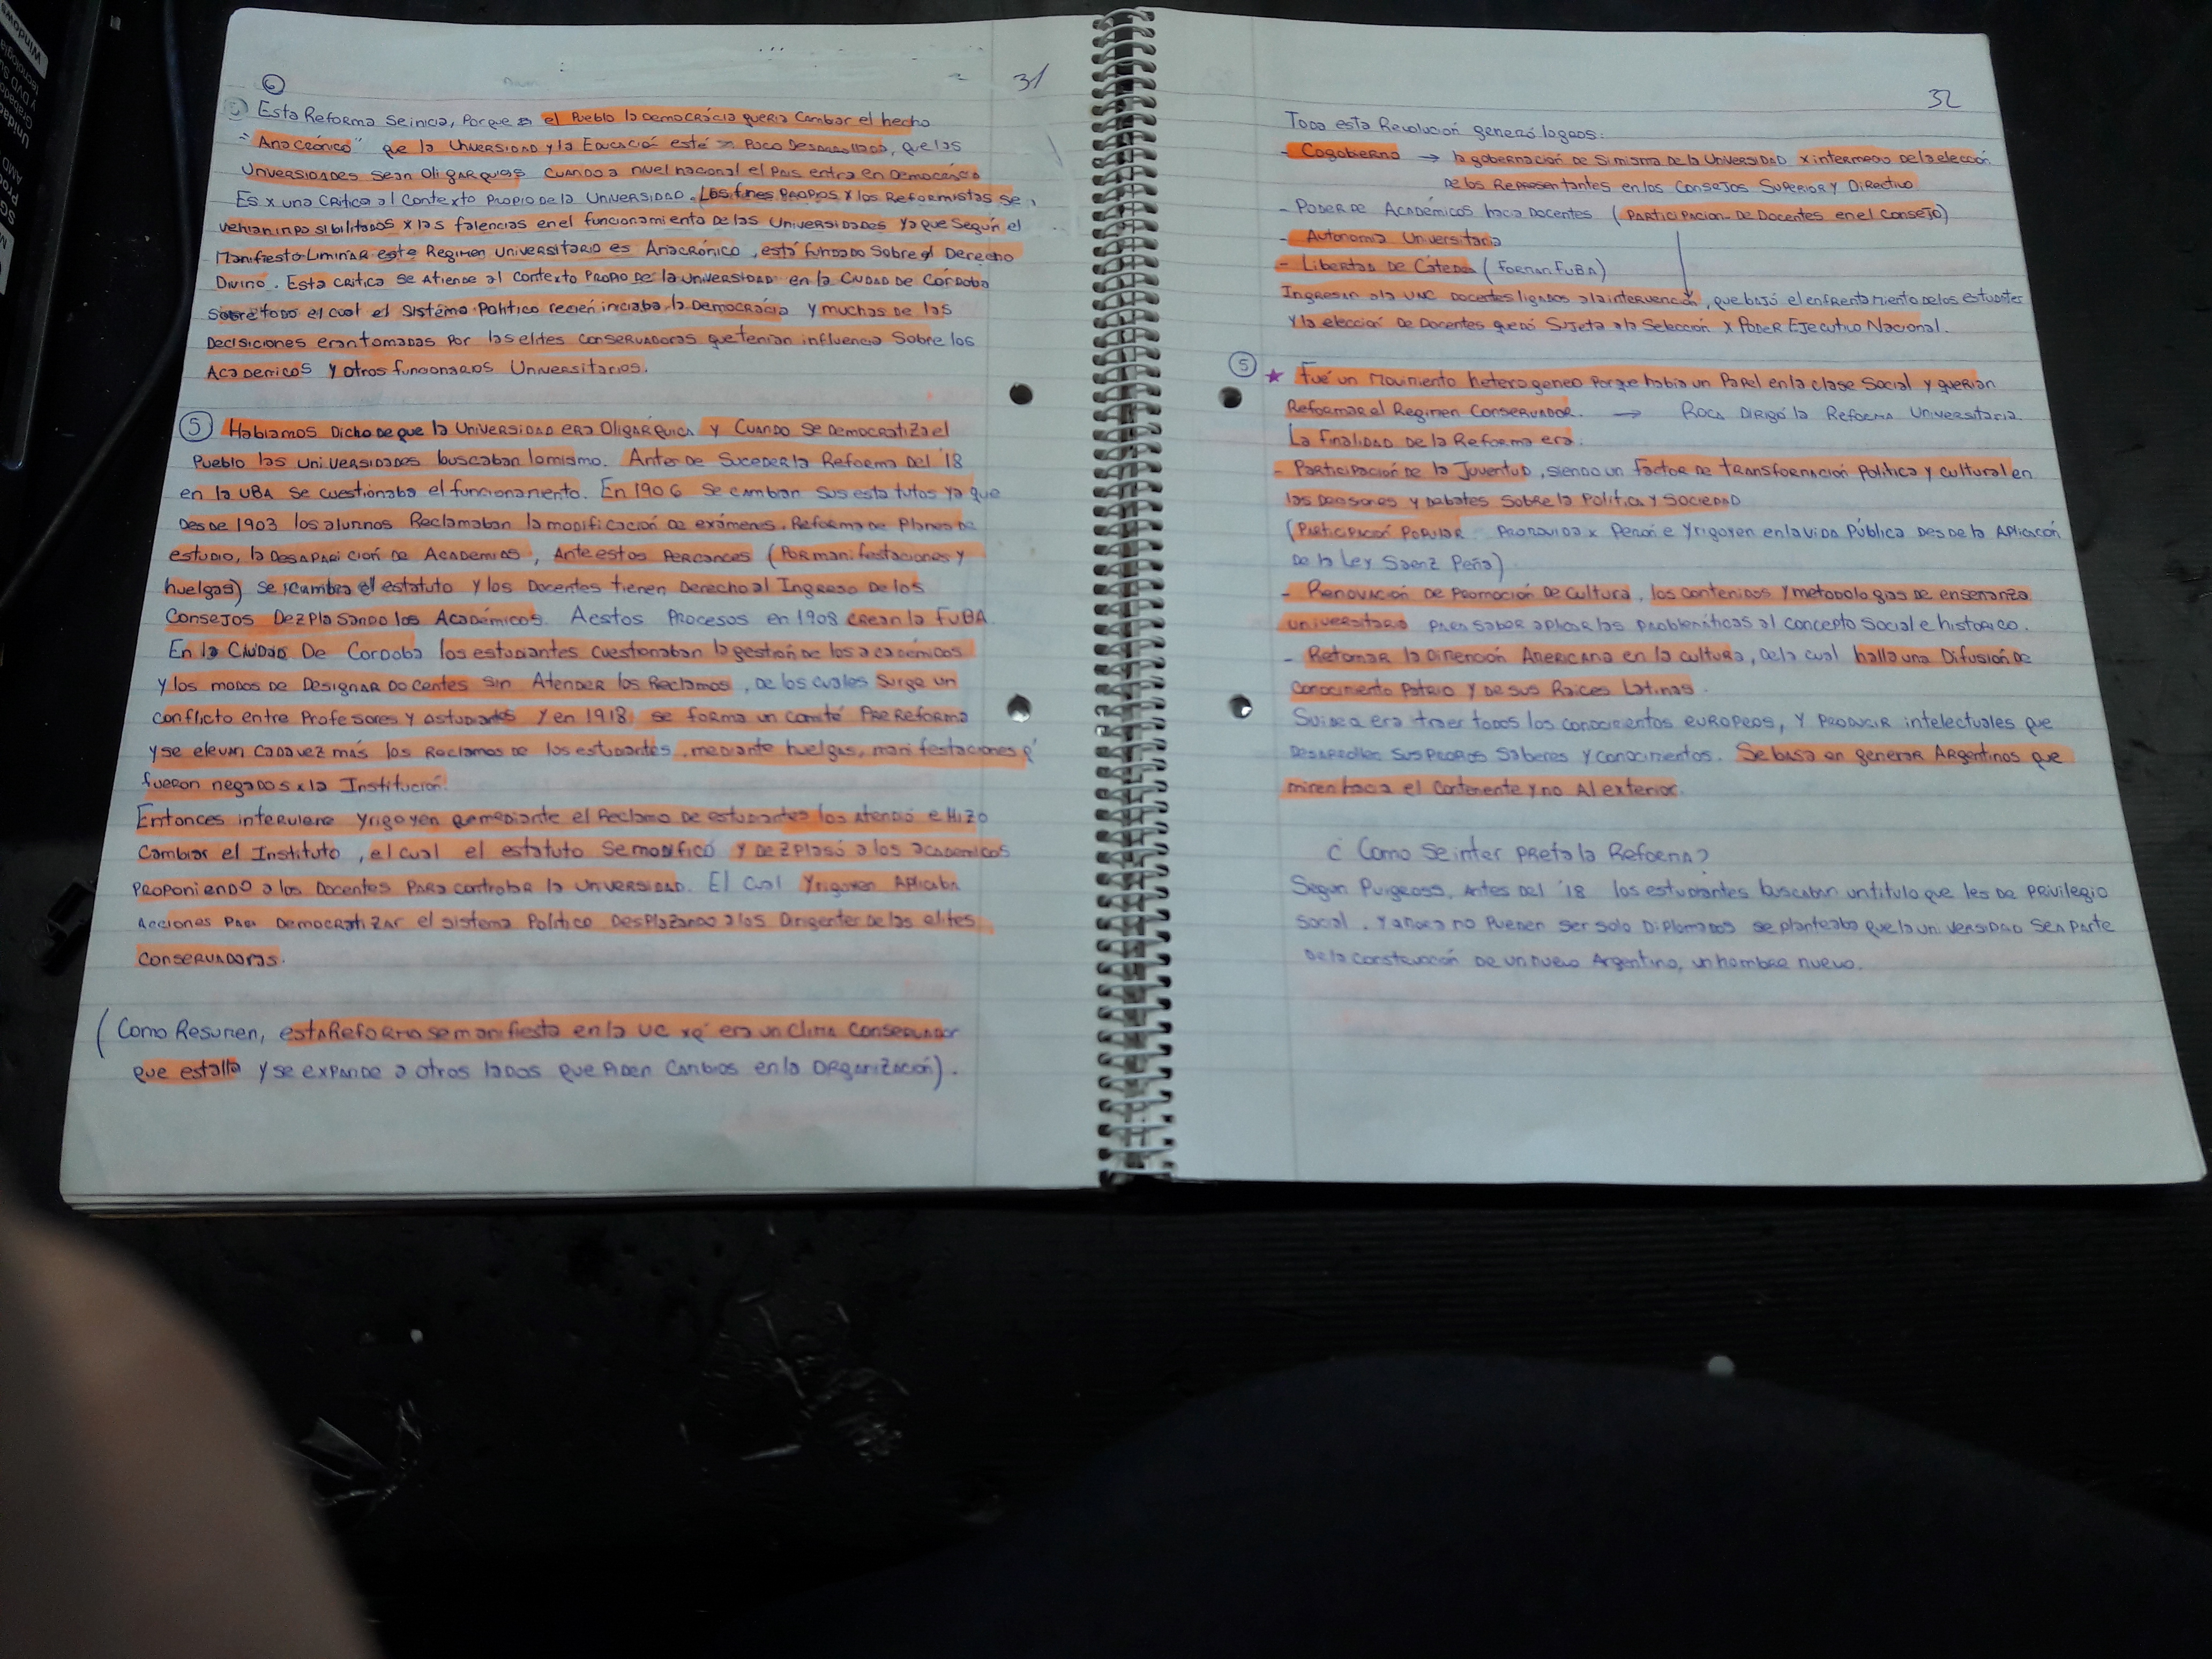 31
6
Esta Reforma se inicia, Porque el Pueblo la Democrácia queria Cambiar el hecho
"Anacrónico" que la Universidad y la Educación esté Poco Desarrollada, que las
Universidades sean Oligarquias Cuando a nivel nacional el Pais entra en Democrácia
Es x una Critica al Contexto Propio de la Universidad. Los fines Propios x los Reformistas se
vehian inposibilitados x las falencias en el funcionamiento de las Universidades ya que Según el
Manifiesto Liminar este Regimen Universitario es Anacrónico, está fundado Sobre el Derecho
Divino. Esta Critica se Atiende al Contexto Propio de la Universidad en la Ciudad de Córdoba
sobre todo el cual el Sistéma Politico recien iniciaba la Democrácia y muchas de las
Decisiones eran tomadas Por las elites conservadoras que tenian influencia Sobre los
Academicos y otros funcionarios Universitarios.
5 Habiamos Dicho de que la Universidad era Oligárquica y Cuando se Democratiza el
Pueblo las Universidades buscaban lo mismo. Antes de Suceder la Reforma Del '18
en la UBA se cuestionaba el funcionamiento. En 1906 se cambian sus estatutos ya que
Desde 1903 los alumnos Reclamaban la modificación de exámenes, Reforma de Planes de
estudio, la Desaparición de Academias, Ante estos Percances (Por manifestaciones y
huelgas) se cambia el estatuto y los Docentes tienen Derecho al Ingreso de los
Consejos Dezplasando los Académicos. A estos Procesos en 1908 crean la FUBA.
En la Ciudad De Cordoba los estudiantes cuestionaban la gestión de los academicos
y los modos de Designar Docentes sin Atender los Reclamos, de los cuales Surge un
conflicto entre Profesores y estudiantes y en 1918 se forma un comité Pre Reforma
y se elevan cada vez más los Reclamos de los estudiantes, mediante huelgas, manifestaciones q'
fueron negados x la Institución.
Entonces interviene Yrigoyen que mediante el Reclamo de estudiantes los Atendió e Hizo
Cambiar el Instituto, el cual el estatuto se modificó y dezplasó a los academicos
Proponiendo a los Docentes Para controlar la Universidad. El cual Yrigoyen Aplicaba
Acciones Para Democratizar el sistema Politico Desplazando a los Dirigentes de las elites
Conservadoras.
(Como Resumen, esta Reforma se manifiesta en la UC xq' era un Clima Conservador
que estalla y se expande a otros lados que Piden Cambios en la Organización).
32
Toda esta Revolución generó logros:
- Cogobierno → la gobernación de si misma de la Universidad x intermedio de la elección
de los Representantes en los Consejos Superior y Directivo
- Poder de Académicos hacia Docentes (Participacion de Docentes en el Consejo)
- Autonomia Universitaria
- Libertad de Cátedra (Forman FUBA)
Ingresan a la UNC Docentes ligados a la intervención, que bajó el enfrentamiento de los estudiantes
y la elección de Docentes quedó Sujeta a la Selección x Poder Ejecutivo Nacional.
5 ★ Fué un Movimiento heterogeneo Porque habia un Papel en la clase Social y querian
Reformar el Regimen Conservador. → Roca Dirigó la Reforma Universitaria.
La Finalidad de la Reforma era:
- Participación de la Juventud, siendo un factor de transformación Politica y cultural en
las Decisiones y debates Sobre la Politica y Sociedad
(Participación Popular Promovida x Perón e Yrigoyen en la vida Pública desde la Aplicación
De la Ley Saenz Peña)
- Renovación de Promoción de Cultura, los contenidos y metodologias de enseñanza
universitaria Para saber aplicar las problemáticas al concepto Social e historico.
- Retomar la Dimención Americana en la cultura, de la cual halla una Difusión de
Conocimiento Patrio y de sus Raices Latinas.
Su idea era traer todos los conocimientos europeos, y producir intelectuales que
Desarrollen sus Propios Saberes y conocimientos. Se basa en generar Argentinos que
miren hacia el Continente y no Al exterior.
¿Como se inter Preta la Reforma?
Segun Puigross, Antes del '18 los estudiantes buscaban un titulo que les de Privilegio
Social. Y ahora no Pueden ser solo Diplomados se planteaba que la universidad sea Parte
de la Construcción de un nuevo Argentino, un hombre nuevo.
Windows